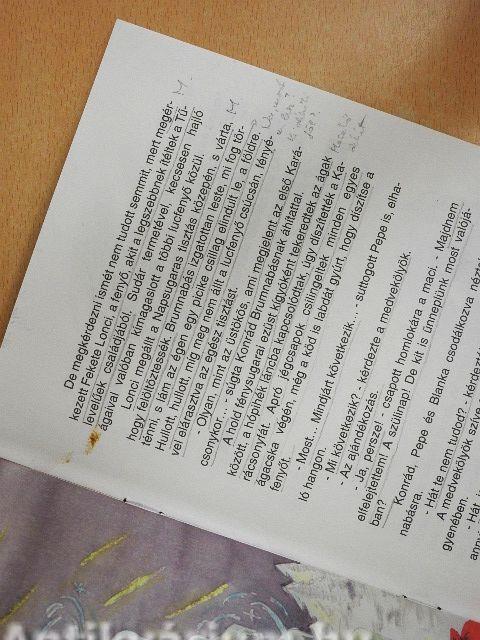 De megkérdezni ismét nem tudott semmit, mert megér-
kezett Fekete Lonci, a fenyő, akit a legszebbnek ítéltek a Tű-
levelűek családjából. Sudár termetével, kecsesen hajló
ágaival valóban kimagaslott a többi lucfenyő közül.
Lonci megállt a Napsugaras tisztás közepén, s várta,
hogy felöltöztessék. Brumnabás izgatottan leste, mi fog tör-
ténni, s lám az égen egy picike csillag elindult le, a földre.
Hullott, hullott, míg meg nem állt a lucfenyő csúcsán, fényé-
vel elárasztva az egész tisztást.
- Olyan, mint az üstökös, ami megjelent az első Kará-
csonykor... - súgta Konrád Brumnabásnak áhítattal.
A hold fénysugarai ezüst kígyóként tekeredtek az ágak
között, a hópihék táncba kapcsolódtak, úgy díszítették a Ka-
rácsonyfát. Apró jégcsapok csilingeltek minden egyes
ágacska végén, még a köd is labdát gyúrt, hogy díszítse a
fenyőt.
- Most... Mindjárt következik... - suttogott Pepe is, elha-
ló hangon.
- Mi következik? - kérdezte a medvekölyök.
- Az ajándékozás.
- Ja, persze! - csapott homlokára a maci. - Majdnem
elfelejtettem! A szülinap! De kit is ünneplünk most valójá-
ban?
Konrád, Pepe és Blanka csodálkozva néztek
nabásra.
- Hát te nem tudod? - kérdezt
A medvekölyök szíve
gyenében.
- Hát
M.
M.
Antikvarium.hu